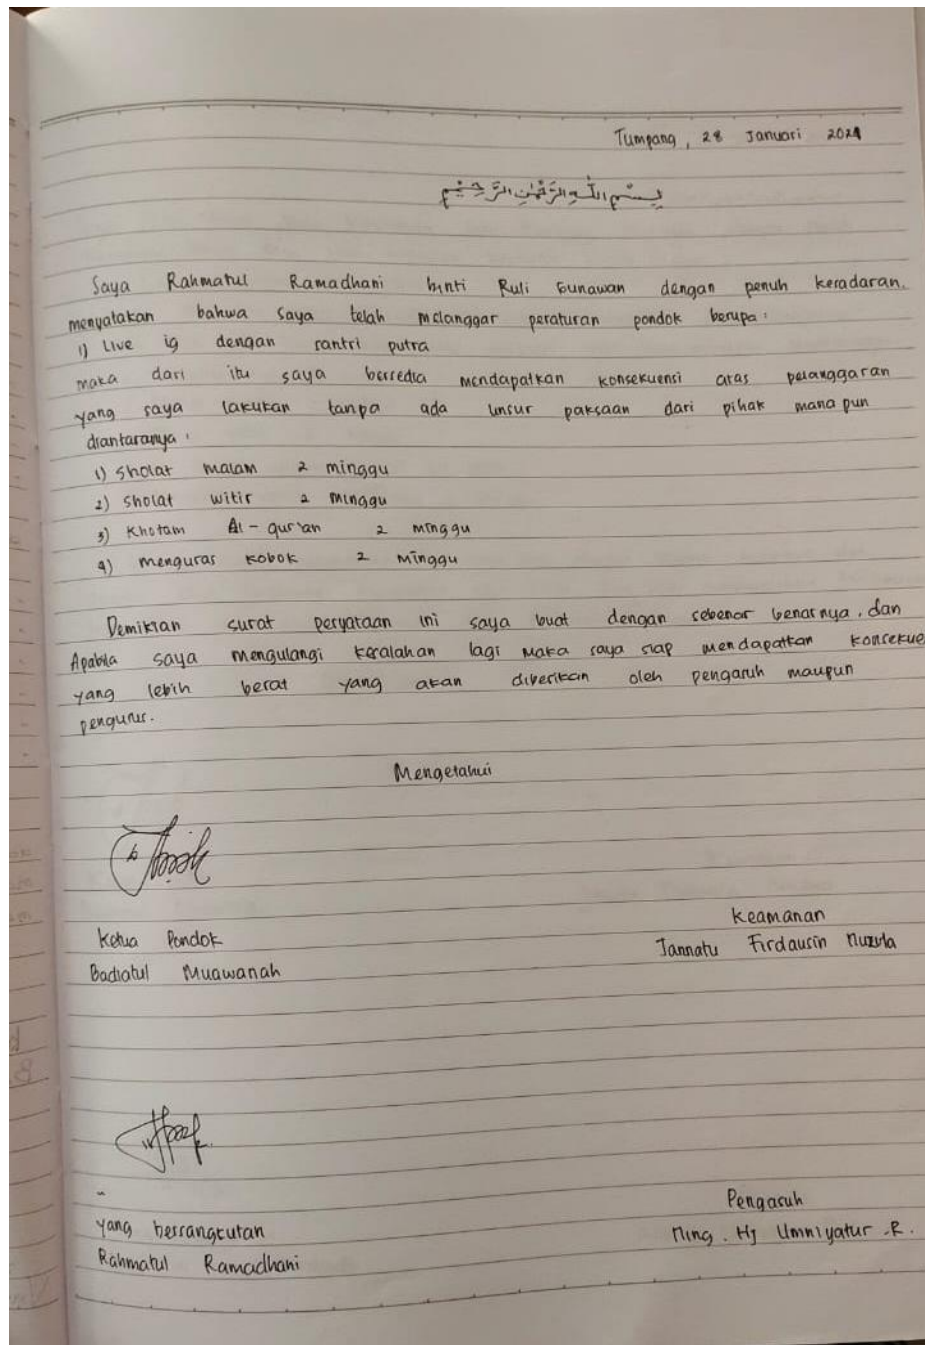 Tumpang, 28 Januari 2024
بِسْمِ اللّٰهِ الرَّحْمٰنِ الرَّحِيْمِ
Saya Rahmatul Ramadhani binti Ruli Gunawan dengan penuh kesadaran.
menyatakan bahwa saya telah melanggar peraturan pondok berupa :
1) Live ig dengan santri putra
maka dari itu saya bersedia mendapatkan konsekuensi atas pelanggaran
yang saya lakukan tanpa ada unsur paksaan dari pihak mana pun
diantaranya :
1) sholat malam 2 minggu
2) sholat witir 2 minggu
3) Khotam Al-qur'an 2 minggu
4) menguras kobok 2 minggu
Demikian surat peryataan ini saya buat dengan sebenar benarnya. dan
Apabila saya mengulangi kesalahan lagi maka saya siap mendapatkan konsekue
yang lebih berat yang akan diberikan oleh pengasuh maupun
pengurus.
Mengetahui
Ketua Pondok
Badiatul Muawanah
Keamanan
Jannatu Firdausin Nuzula
yang bersangkutan
Rahmatul Ramadhani
Pengasuh
Ning. Hj Umniyatur .R.